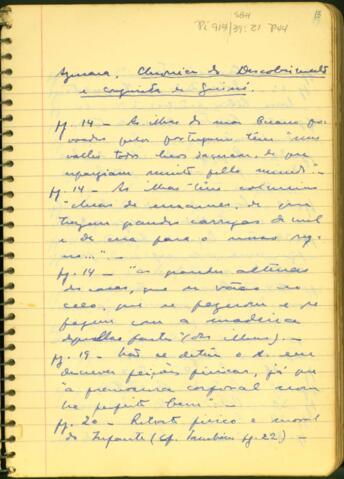 SBH
Pi 914/39: 21 P44
Azurara, Chronica do Descobrimento
e conquista de Guiné.
pg. 14 — As ilhas do mar Oceano po-
voadas pelos portugueses têm "
valles todos cheos daçucar, de que
espargiam muito pello mundo". —
pg. 14 — As ilhas têm
"cheas de enxames, de que
tragem grandes carregas de mel
e de cera para o nosso reg-
no..." —
pg. 14 — "as grandes alturas
das casas, que se vão ao
ceeo, que se fezerom e se
fazem com a madeira
daquellas partes" (das ilhas). —
pg. 19 — Não se detem o A. em
descrever feições fisicas, já que
"a fremosura corporal nom
he perfeito bem" —
pg. 20 — Retrato fisico e moral
do Infante (Cf. tambem pg. 22) —